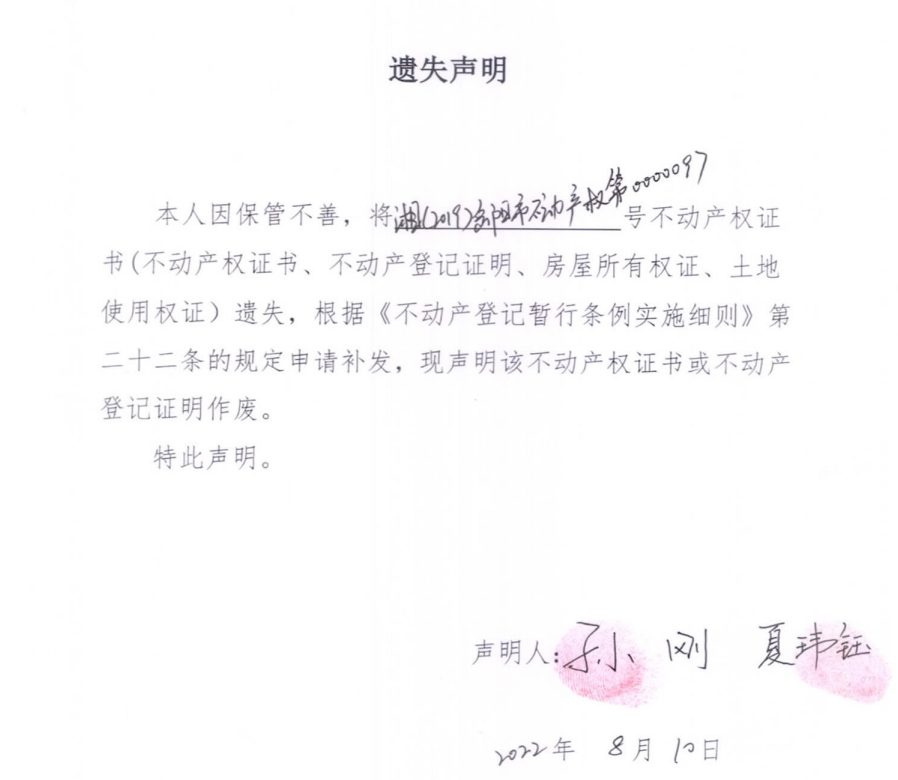 遗失声明
本人因保管不善，将湘(2019)邵阳市不动产权第0000097号不动产权证
书(不动产权证书、不动产登记证明、房屋所有权证、土地
使用权证）遗失，根据《不动产登记暂行条例实施细则》第
二十二条的规定申请补发，现声明该不动产权证书或不动产
登记证明作废。
特此声明。
声明人：孙小刚 夏玮钰
2022年 8月 10日